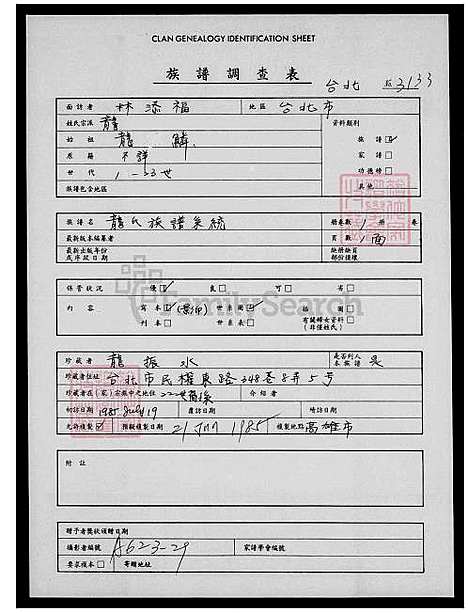 CLAN GENEALOGY IDENTIFICATION SHEET
族譜調查表
台北 3133
面訪者 林添福 地區 台北市
姓氏宗派 龔 資料類別
始祖 龔 族譜 ✓
原籍 不詳 家譜 □
世代 1-23世 功德榜 □
族譜包含地區 其他
族譜名 龔氏族譜系統 冊卷數 1 冊 卷
最新版本編纂者 頁數 1面
最新出版年份 缺冊缺頁
或序跋日期 部份損壞
保管狀況 優 ✓ 良 □ 可 □ 劣 □
內容 寫本 ✓ (影印) 世系圖 ✓ 插圖 □
刊本 □ 世系表 □ 有關婦女資料 □
(非僅姓氏)
FamilySearch
珍藏者 龔振水 是否列入本族譜 是
珍藏者住址 台北市民權東路348巷8弄5號
珍藏者在(家)宗族中之地位 22世裔孫 介紹者
初訪日期 1985 July 19 覆訪日期 續訪日期
允許複製 ✓ 預擬複製日期 21 1985 複製地點 高雄市
附註
贈予者獎狀頒贈日期
攝影者編號 A623-29 家譜學會編號
要求複本 □ 寄贈地址